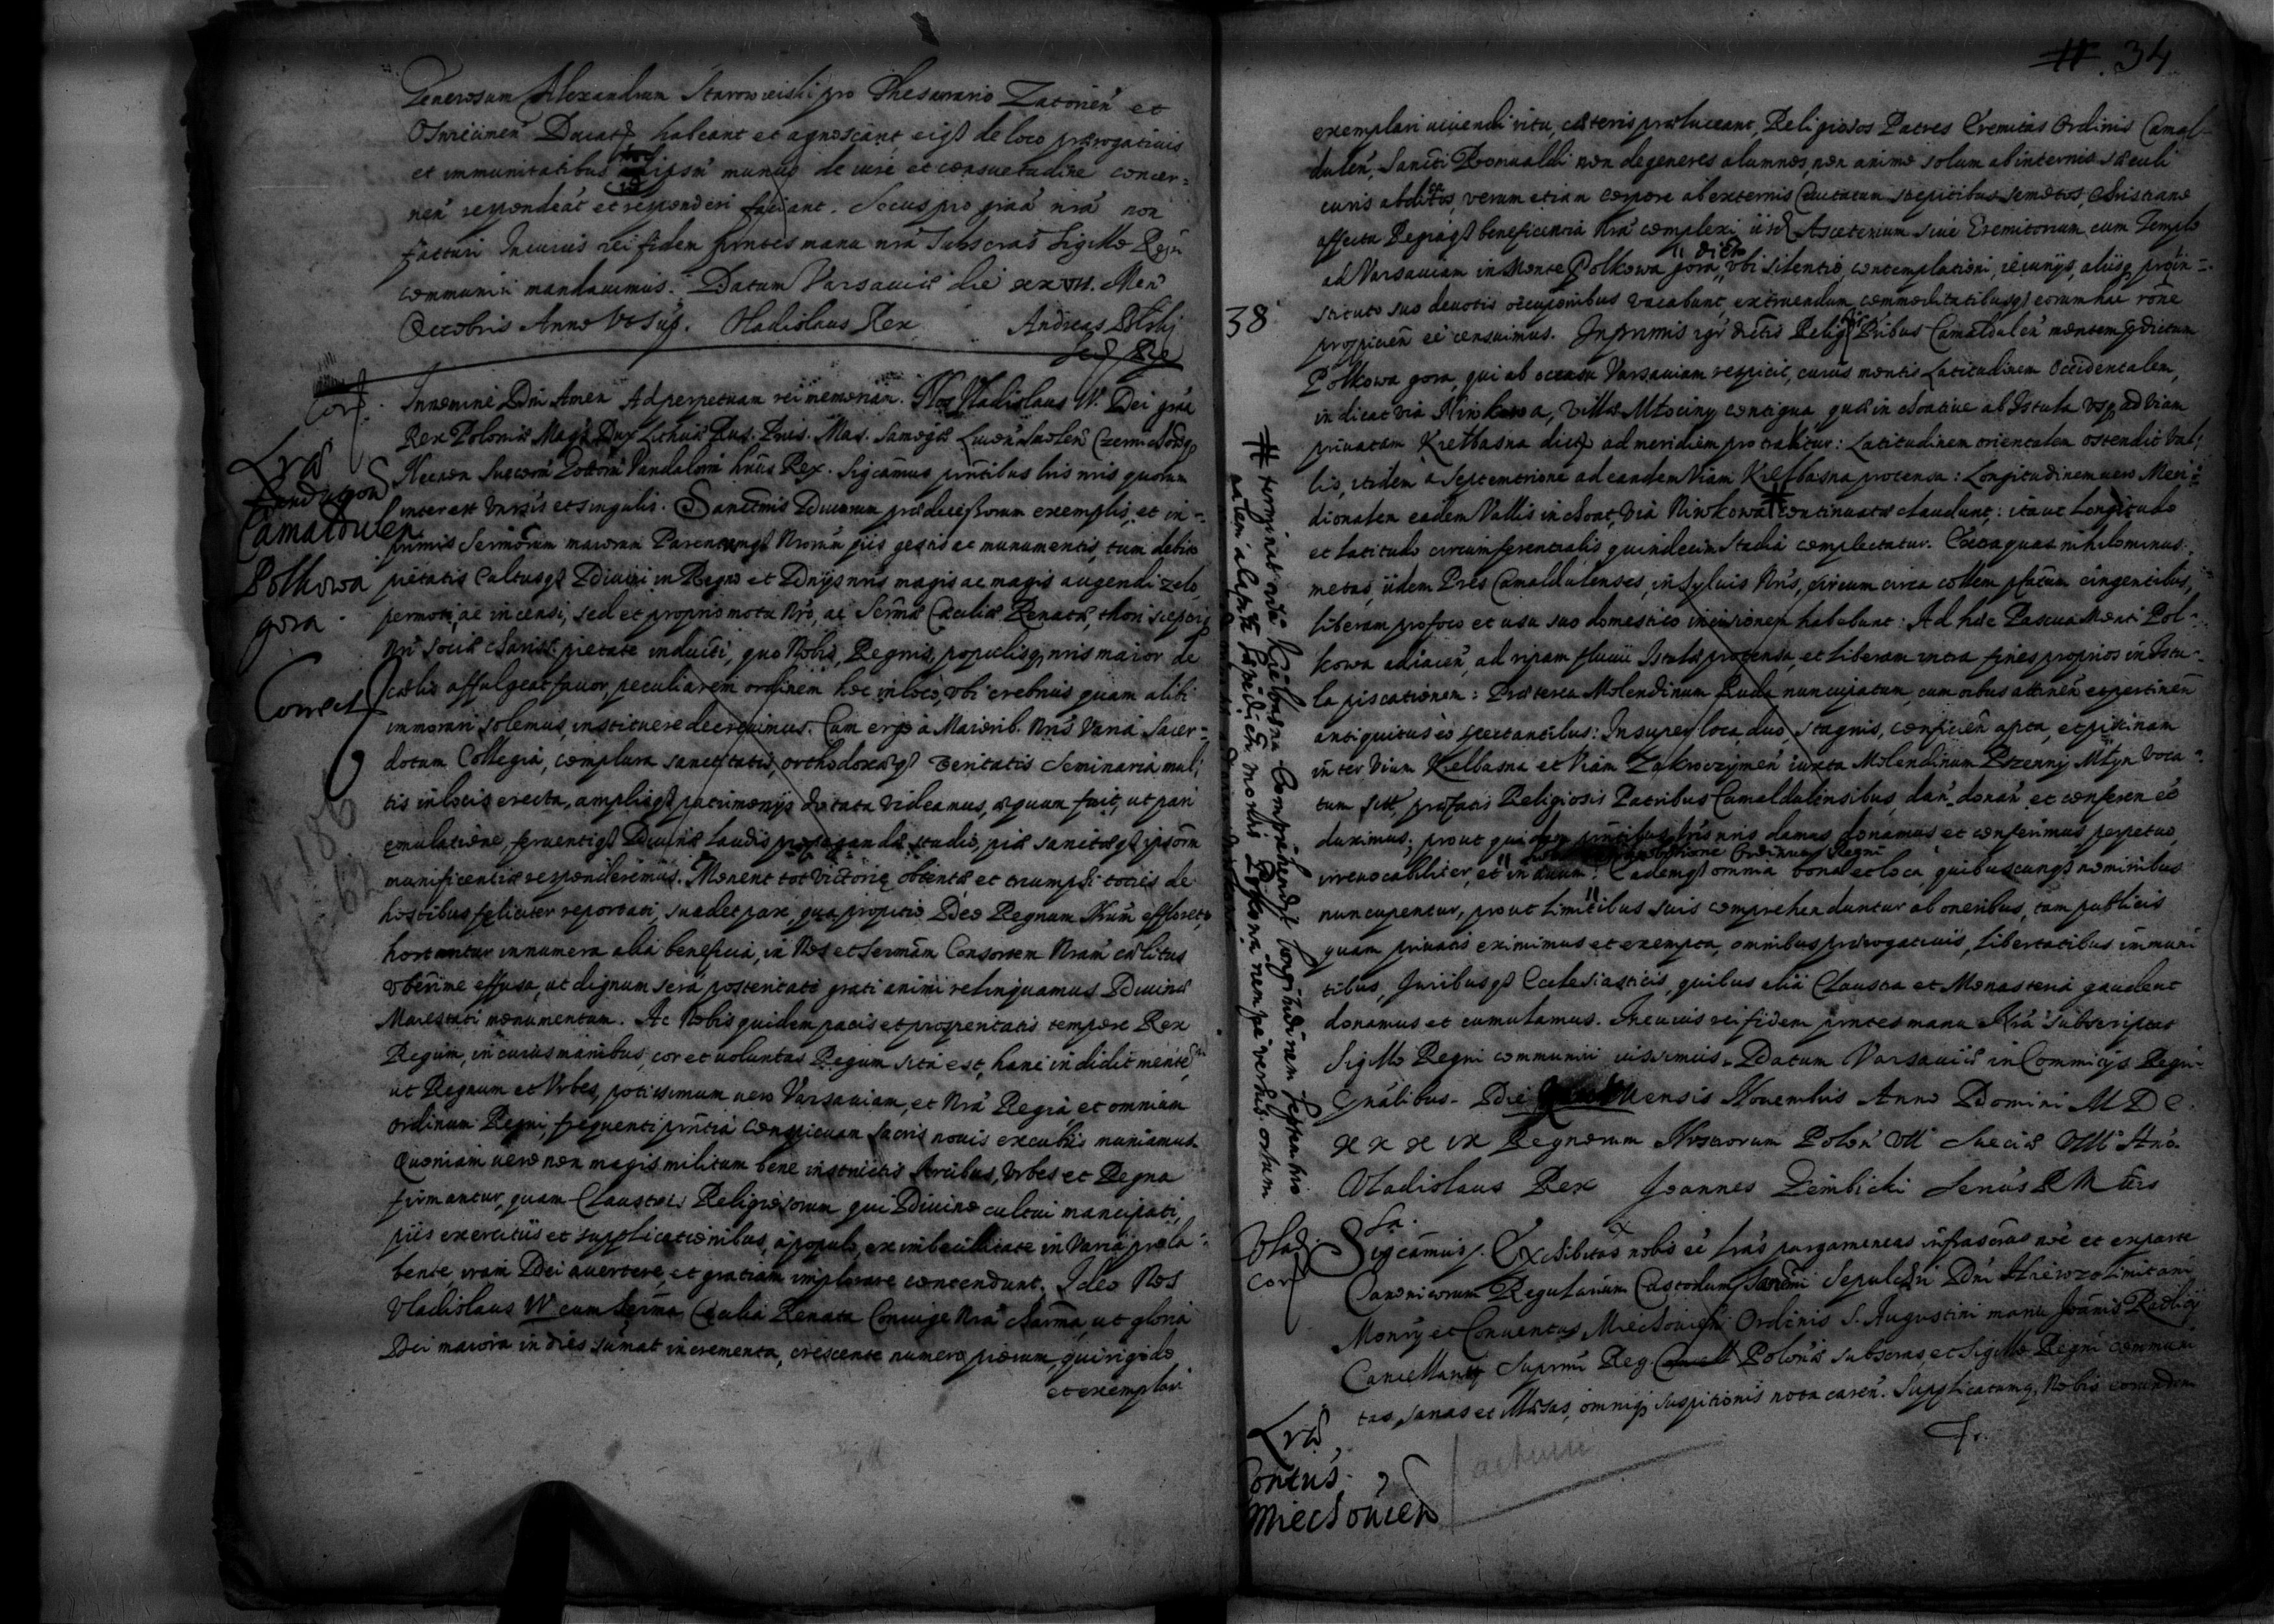 Generosum Alexandrum Starowieiski pro Thesaurario Zatorien̄ et
Oswiecimen̄ Ducatꝰ habeant et agnoscant, eiqꝫ de loco praerogativis
et immunitatibus ipsū munus de iure et consuetudine concer=
nen̄ respondeāt et responderi faciant. Secus pro grāā nrā non
facturi. In cuius rei fidem pn̄tes manu nrā subscras̄ Sigillo Regni
communiri mandavimus. Datum Varsaviae die xxvii. Men̄
Octobris Anno Vt Sup. Vladislaus Rex Andreas
Cor.
In nomine Dn̄i Amen Ad perpetuam rei memoriam. Nos Vladislaus IV. Dei grā̄
Rex Poloniae Mag. Dux Lithuae Rus. Prus. Mas. Samogae Livon̄ Smolen̄ Czerniechov̄qꝫ
Necnon Suecorū Gottorū Vandalorū haerūs Rex. Sigcāmus pn̄tibus lr̄is nr̄is quorum
interest Vnivsīs et singulis. Sanctīmis Divorum praedecessorum exemplis, et in=
primis Sermōrum maiorum Parentumqꝫ Nrorūm piis gestis ac monumentis, tum debito
pietatis Cultusqꝫ Divini in Regno et Dn̄ijs nr̄is magis ac magis augendi zelo
permoti, ac incensi, sed et proprio motu Nr̄o, ac Serm̄ae Caeciliae Renatae, thori sceptriqꝫ
nr̄i sociae Chariss. pietate inducti, quo Nobis, Regnis, populisqꝫ nr̄is maior de
caelis affulgeat favor, peculiarem ordinem hoc in loco, vbi crebrius quam alibi
immorari solemus, instituere decrevimus. Cum ergo à Maiorib. Nr̄is varia Sacer=
dotum Collegia, complura sanctitatis, orthodoxaeqꝫ veritatis Seminaria mul=
tis in locis erecta, amplisqꝫ patrimonijs dotata videamus, aequum fuit, ut pari
aemulatione, ferventiqꝫ Divinae Laudis propagandae studio, piae sanctaeqꝫ ipsorūm
munificentiae responderemus. Monent tot victoriae obtentae et triumphi toties de
hostibus feliciter reportati, suadet pax, qua propitio Deo Regnum Nrūm effloret,
hortantur innumera alia beneficia, in Nos et Sermām Consortem Nram̄ caelitus
vberrime effusa, ut dignum sera posteritati grati animi relinquamus Divinae
Maiestati monumentum. Ac Nobis quidem pacis et prosperitatis tempore Rex
Regum, in cuius manibus, cor et voluntas Regum sita est, hanc indidit mentē,
ut Regnum et Vrbes, potissimum vero Varsaviam, et Nrā Regia et omnium
Ordinum Regni, frequenti pn̄tia conspicuam sacris novis excubiis muniamus.
Quoniam vero non magis militum bene instructis Arcibus, Vrbes et Regna
firmantur, quam Claustris Religiosorum qui Divino cultui mancipati,
piis exercitiis et supplicationibus, à populo, ex imbecillitate in varia prola=
bente, iram Dei avertere, et gratiam implorare contendunt. Ideo Nos
Vladislaus IV cum Serm̄a Caecilia Renata Coniuge Nrā Charm̄a, ut gloria
Dei maiora in dies sumat incrementa, crescente numero piorum, qui rigido
et exemplari
Lr̄ae
Fundaon̄
Camaldulen̄
Polkowa
gora.
Correct
34
exemplari vivendi ritu, caeteris praeluceant, Religiosos Patres Eremitas Ordinis Camal=
dulen̄, Sancti Romualdi non degeneres alumnos, non animo solum ab internis saeculi
curis abditos, verum etiam corpore ab externis Civitatum strepitibus semotos, Christiano
affectu Regiaqꝫ beneficentia Nrā complexi, iisdꝫ Asceterium sive Eremitorium cum Templo
ad Varsaviam in Monte Polkowa gora, dicto vbi silentio, contemplationi, ieiunijs, aliisqꝫ pro in=
stituto suo devotis occupōnibus vacabunt, extruendum, commoditatibusqꝫ eorum hac rōne
prospicien̄ eē censuimus. Inprimis igr̄ dictis Religs̄ Pr̄ibus Camaldulen̄ montem dictum
Polkowa gora, qui ab occasu Varsaviam respicit, cuius montis Latitudinem Occidentalem,
indicat via Ninkowa, villae Młociny contigua, quae inchoatur ab Istula Vsqꝫ ad viam
privatam Kiełbasna dictꝰ ad meridiem protrahitur: Latitudinem orientalem ostendit Val=
lis, itidem à Septemtrione ad eandem Viam Kiełbasna protensa: Longitudinem vero Meri=
dionalem eadem Vallis inchoat, Via Ninkowa # continuata claudunt: ita ut Longitudo
et Latitudo circumferentialis quindecim Stadia complectatur. Extra quas nihilominus
metas, iidem Pr̄es Camaldulenses, in Sylvis Nr̄is, circum circa collem pfatum cingentibus,
liberam pro foco et usu suo domestico incisionem habebunt: Ad haec Pascua Monti Pol=
kowa adiacen̄, ad ripam fluvii Istulae protensa, et Liberam intra fines proprios in Istu=
la piscationem: Praeterea Molendinum Ruda nuncupatum, cum oībus attinen̄ et pertinen̄
antiquitus eo spectantibus: Insuper loca duo, stagnis, conficien̄ apta, et piscinam
inter Viam Kiełbasna et Viam Zakroczymen̄ iuxta Molendinum Pszenny Młyn voca=
tum sitꝰ, praefatis Religiosis Patribus Camaldulensibus, dan̄ donan̄ et conferen̄ eē
duximus, prout quidem pn̄tibus lr̄is nr̄is damus donamus et conferimus perpetuo
irrevocabiliter, et in aevum. Eademqꝫ omnia bona et loca, quibuscunqꝫ nominibus
Ordinum Regni
nuncupentur, prout limitibus suis comprehenduntur ab oneribus, tam publicis
quam privatis eximimus et exempta, omnibus praerogativis, libertatibus immuni
tibus, Iuribusqꝫ Ecclesiasticis, quibus alia Claustra et Monasteria gaudent
donamus et cumulamus. In cuius rei fidem pn̄tes manu Nrā subscriptas
Sigillo Regni communiri iussimus. Datum Varsaviae in Commitijs Regni
Gn̄alibus. Die Mensis Novembris Anno Domini M D C.
X X X IX Regnorum Nostrorum Polon̄ VII Sueciae VIII An̄o.
Vladislaus Rex Joannes Zembicki
38
# terminat via Kiełbasna Comprehendit Longitudinem Septentrio
Vlad.
Cor
Sigcāmus. Exhibitas nobis eē Lrās pargameneas infrascrās nōe et ex parte
Canonicorum Regularium Custodum Sanctm̄i Sepulchri Dn̄i Hierozolimitani
Monrij et Conventus Miechovien̄ Ordinis S. Augustini manu Joānis Radlicij
Cancellarij Suprm̄i Reg. Poloniae subscras, et Sigillo Regni communi
tas, sanas et illaesas, omniqꝫ suspitionis nota caren̄. Supplicatumqꝫ Nobis eorundem
Lr̄ae
Contus
Miechovien̄